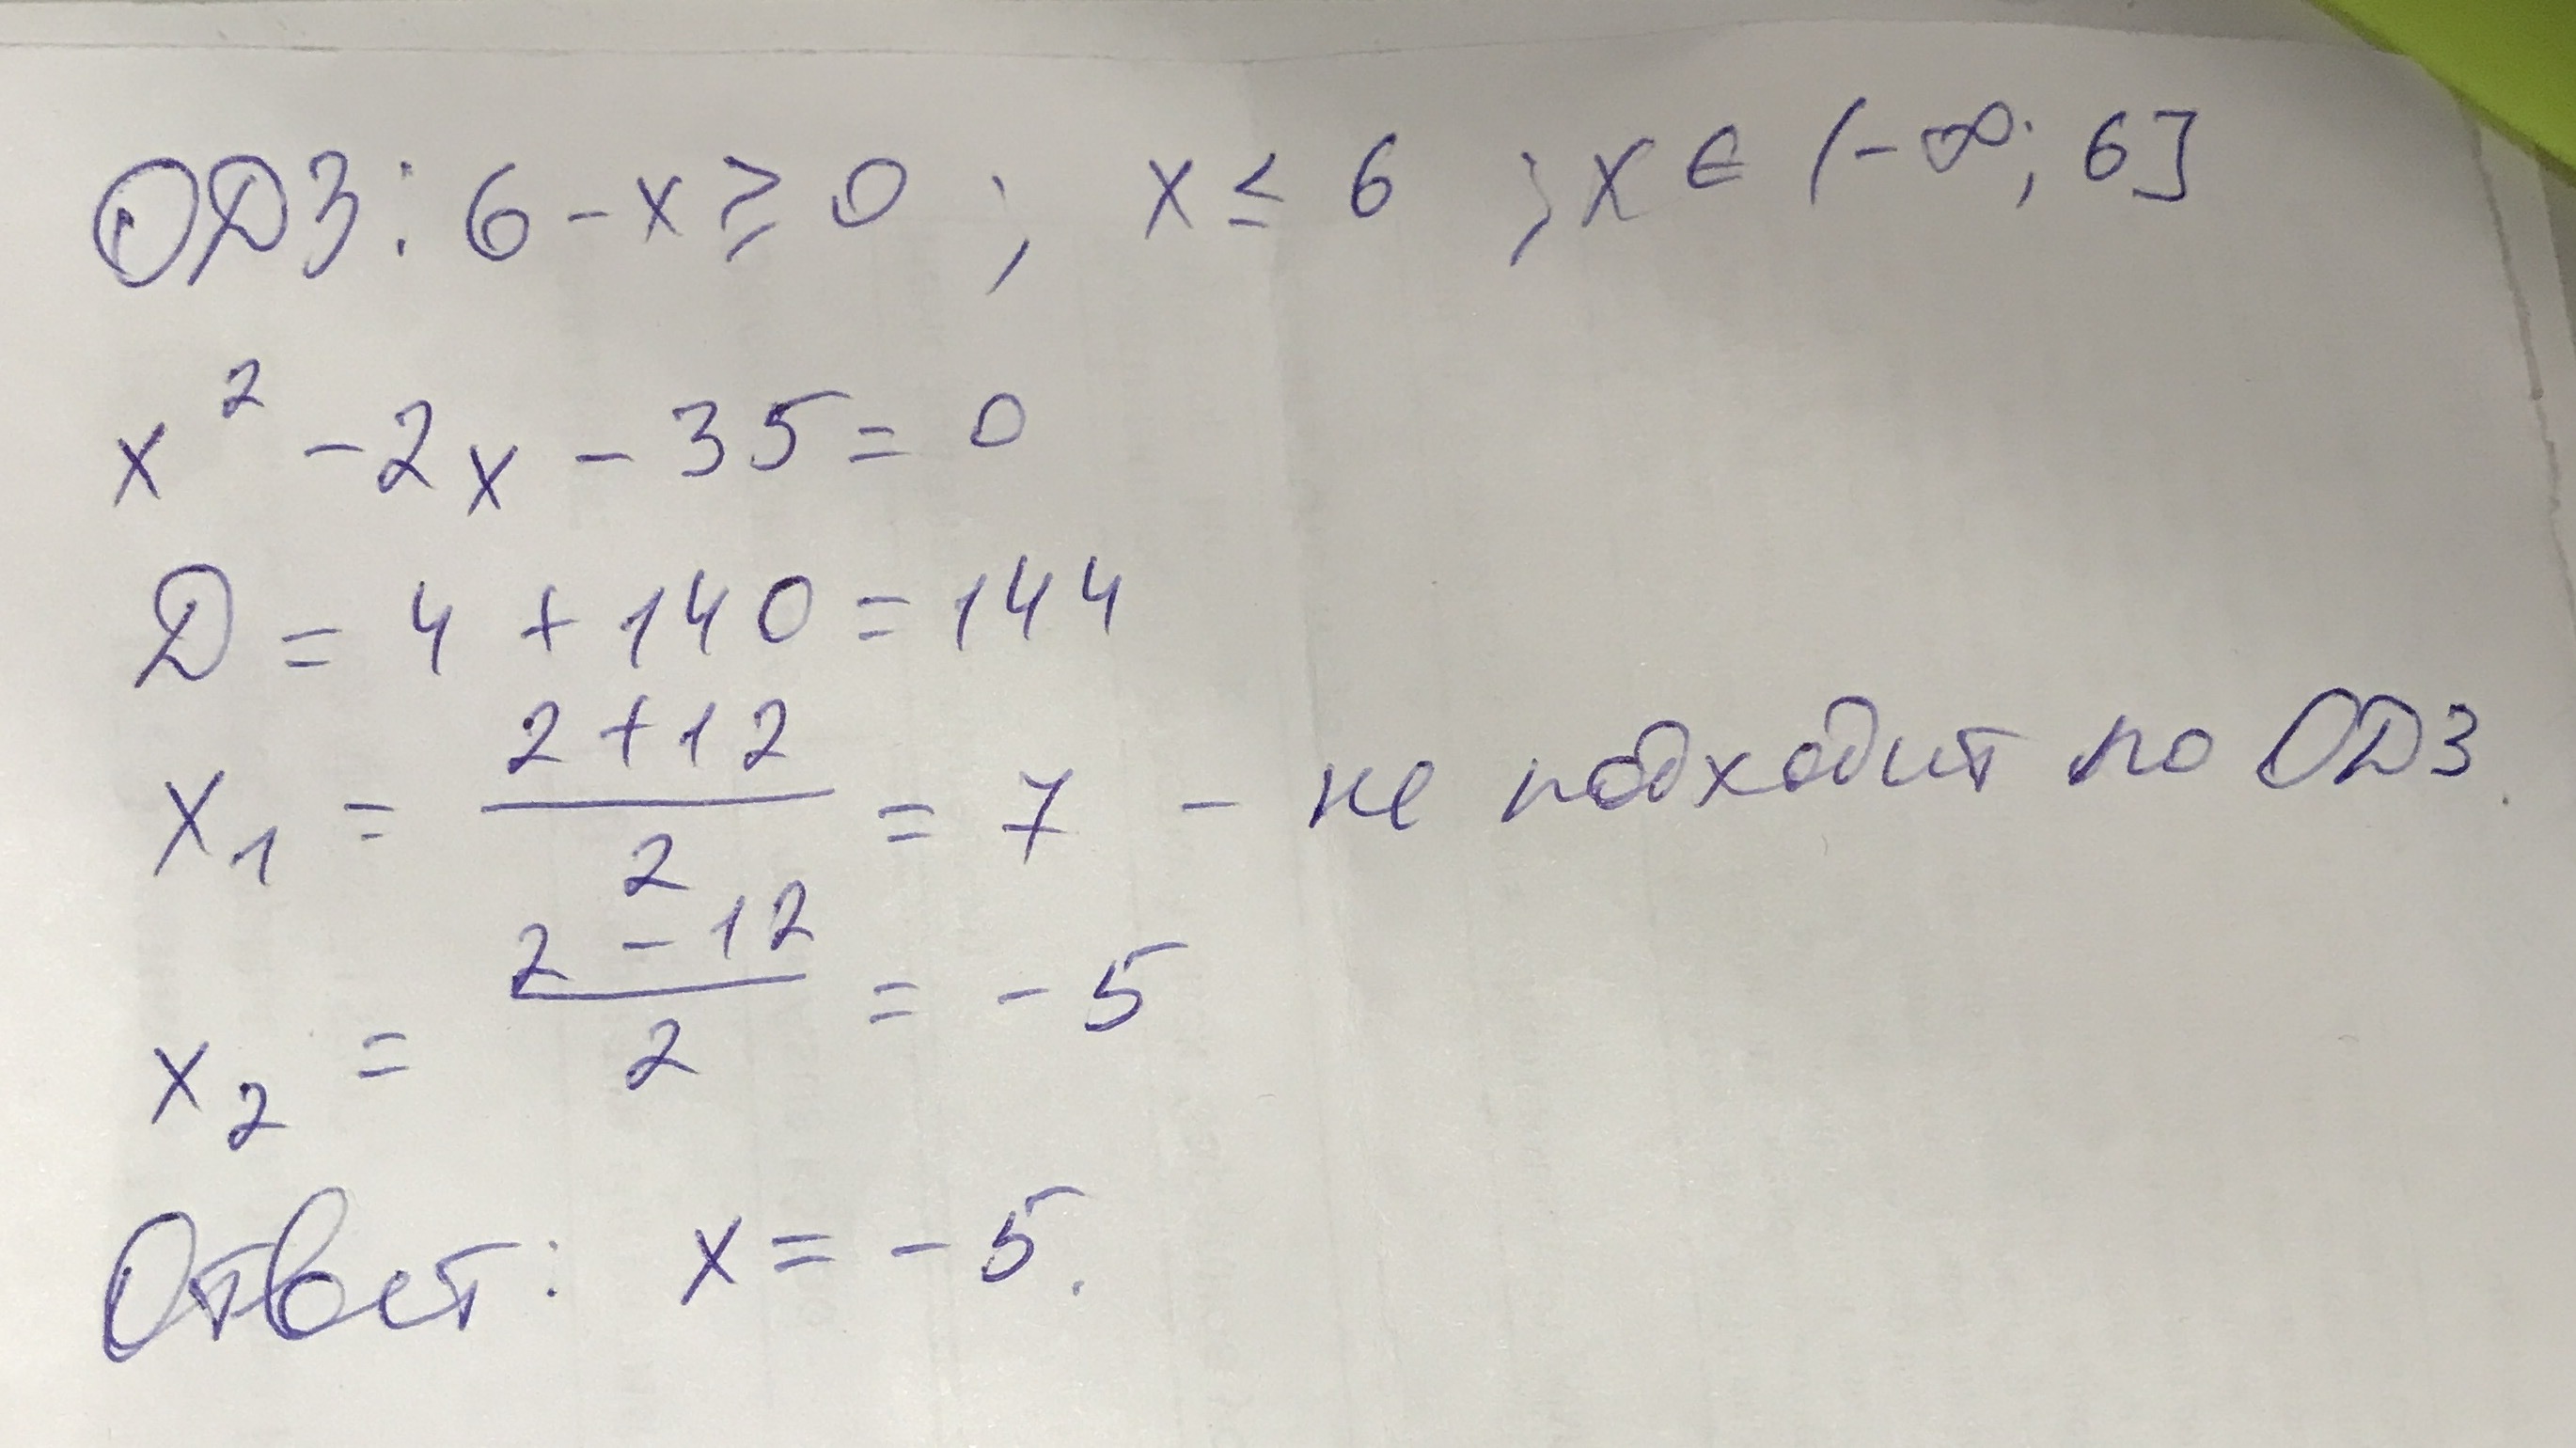 ОДЗ: 6 - x ≥ 0 ; x ≤ 6 ; x ∈ (-∞; 6]
x² - 2x - 35 = 0
D = 4 + 140 = 144
x₁ = (2 + 12)/2 = 7 - не подходит по ОДЗ.
x₂ = (2 - 12)/2 = -5
Ответ: x = -5.